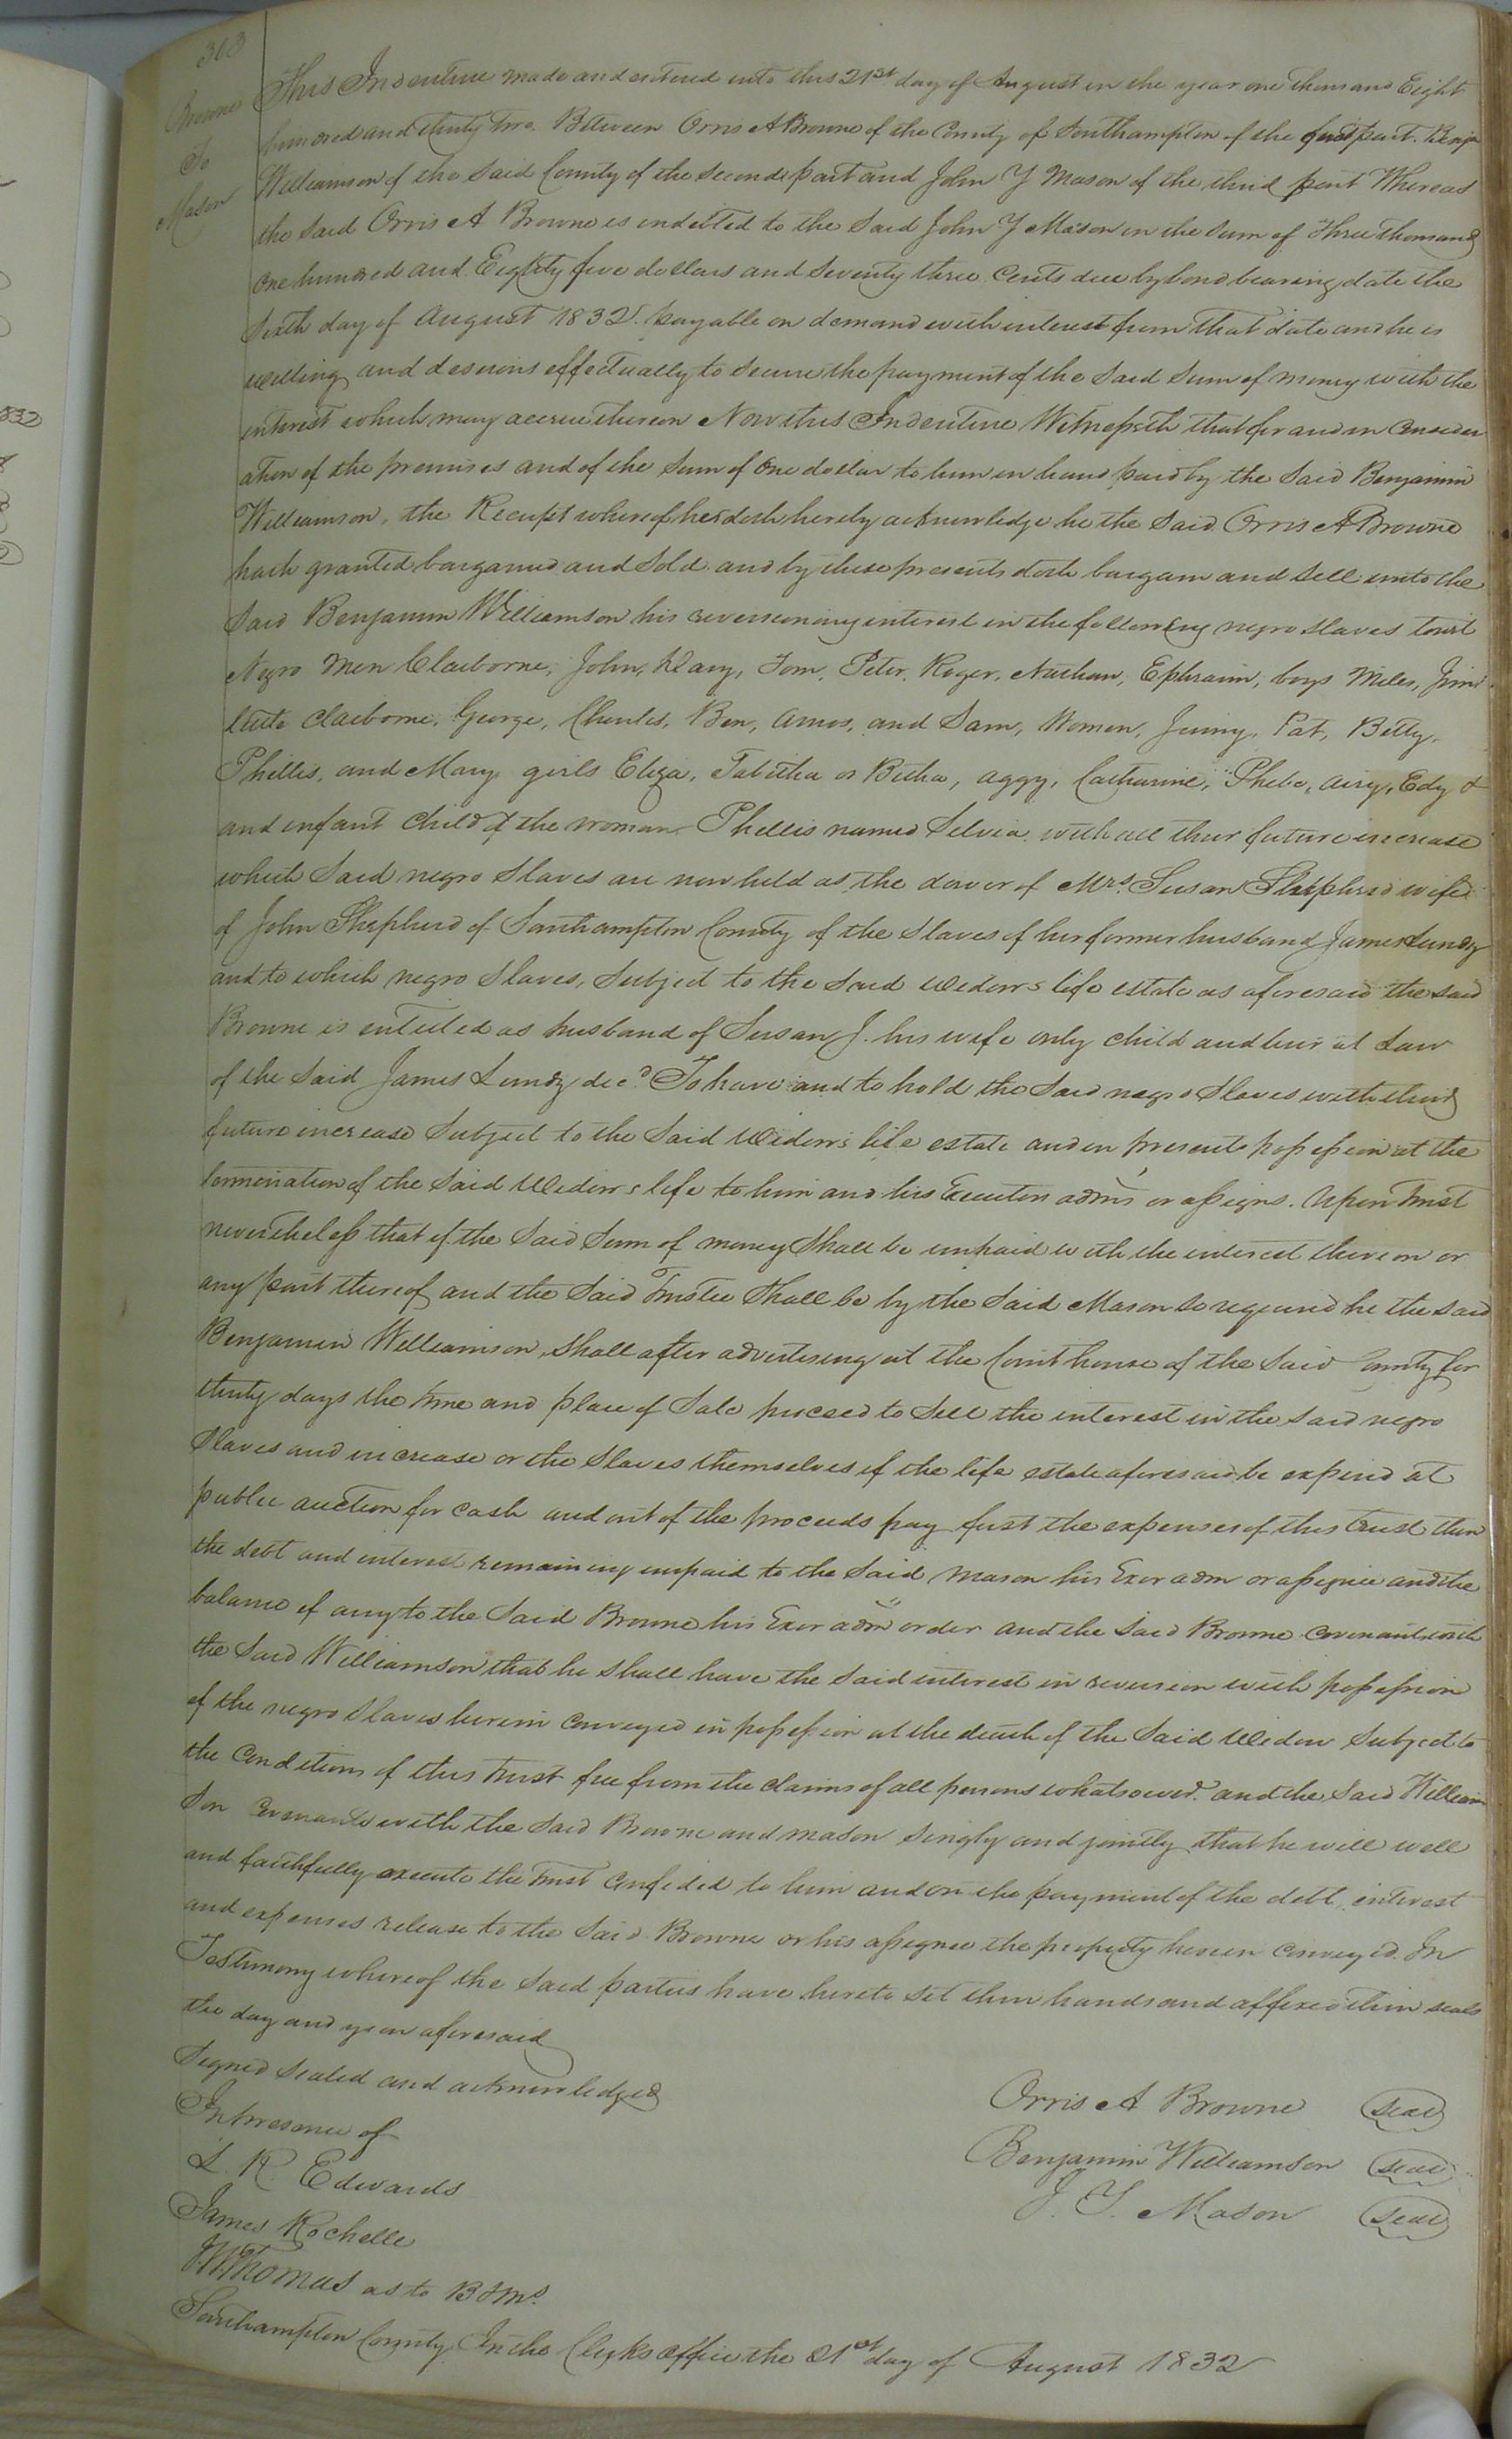 303
Browne
To
Mason
This Indenture made and entered into this 21st day of August in the year one thousand Eight
hundred and thirty two. Between Orris A Browne of the County of Southampton of the first part. Benja
Williamson of the said County of the second part and John Y Mason of the third part Whereas
the said Orris A Browne is indebted to the said John Y Mason in the sum of Three thousand
One hundred and Eighty five dollars and seventy three Cents due by bond bearing date the
Sixth day of August 1832. payable on demand with interest from that date and he is
willing and desirous effectually to secure the payment of the said sum of money with the
interest which may accrue thereon Now this Indenture Witnesseth that for and in Consider
ation of the premises and of the sum of One dollar to him in hand paid by the said Benjamin
Williamson, the Receipt whereof he doth hereby acknowledge he the said Orris A Browne
hath granted bargained and sold and by these presents doth bargain and sell unto the
said Benjamin Williamson his reversionary interest in the following negro slaves towit
Negro Men Claiborne, John, Davy, Tom, Peter, Roger, Nathan, Ephraim, boys Miles, Jim
little Claiborne, George, Charles, Ben, Amos, and Sam, Women, Jinny, Pat, Betty,
Phillis, and Mary girls Eliza, Tabitha or Bitha, Aggy, Catharine, Phebe, Airy, Edy &
and infant child of the woman Phillis named Silvia with all their future increase
which said negro slaves are now held as the dower of Mrs. Susan Shepherd wife
of John Shepherd of Southampton County of the slaves of her former husband James Lundy
and to which negro slaves, subject to the said widows life estate as aforesaid the said
Browne is entitled as husband of Susan J. his wife only child and heir at Law
of the said James Lundy decd. To have and to hold the said negro slaves with their
future increase subject to the said widows life estate and in presents possession at the
termination of the said widows life to him and his Executors adms or assigns. Upon trust
nevertheless that if the said sum of money shall be unpaid with the interest thereon or
any part thereof and the said Trustee shall be by the said Mason so required he the said
Benjamin Williamson, shall after advertising at the Court house of the said County for
thirty days the time and place of sale proceed to sell the interest in the said negro
slaves and increase or the slaves themselves if the life estate aforesaid be expired at
public auction for cash and out of the proceeds pay first the expenses of this trust then
the debt and interest remaining unpaid to the said Mason his Exor adm or assignee and the
balance if any to the said Browne his Exor adm order and the said Browne covenants with
the said Williamson that he shall have the said interest in reversion with possession
of the negro slaves herein conveyed in possession at the death of the said widow subject to
the conditions of this trust free from the claims of all persons whatsoever. and the said William
son covenants with the said Browne and Mason singly and jointly that he will well
and faithfully execute the trust confided to him and on the payment of the debt, interest
and expenses release to the said Browne or his assignee the property herein conveyed. In
Testimony whereof the said parties have hereto set their hands and affixed their seals
the day and year aforesaid
Signed sealed and acknowledged
In presence of
L. R. Edwards
James Rochelle
J.W. Thomas as to B & M.
Orris A Browne seal
Benjamin Williamson seal
J. Y. Mason seal
Southampton County In the Clerks office the 21st day of August 1832